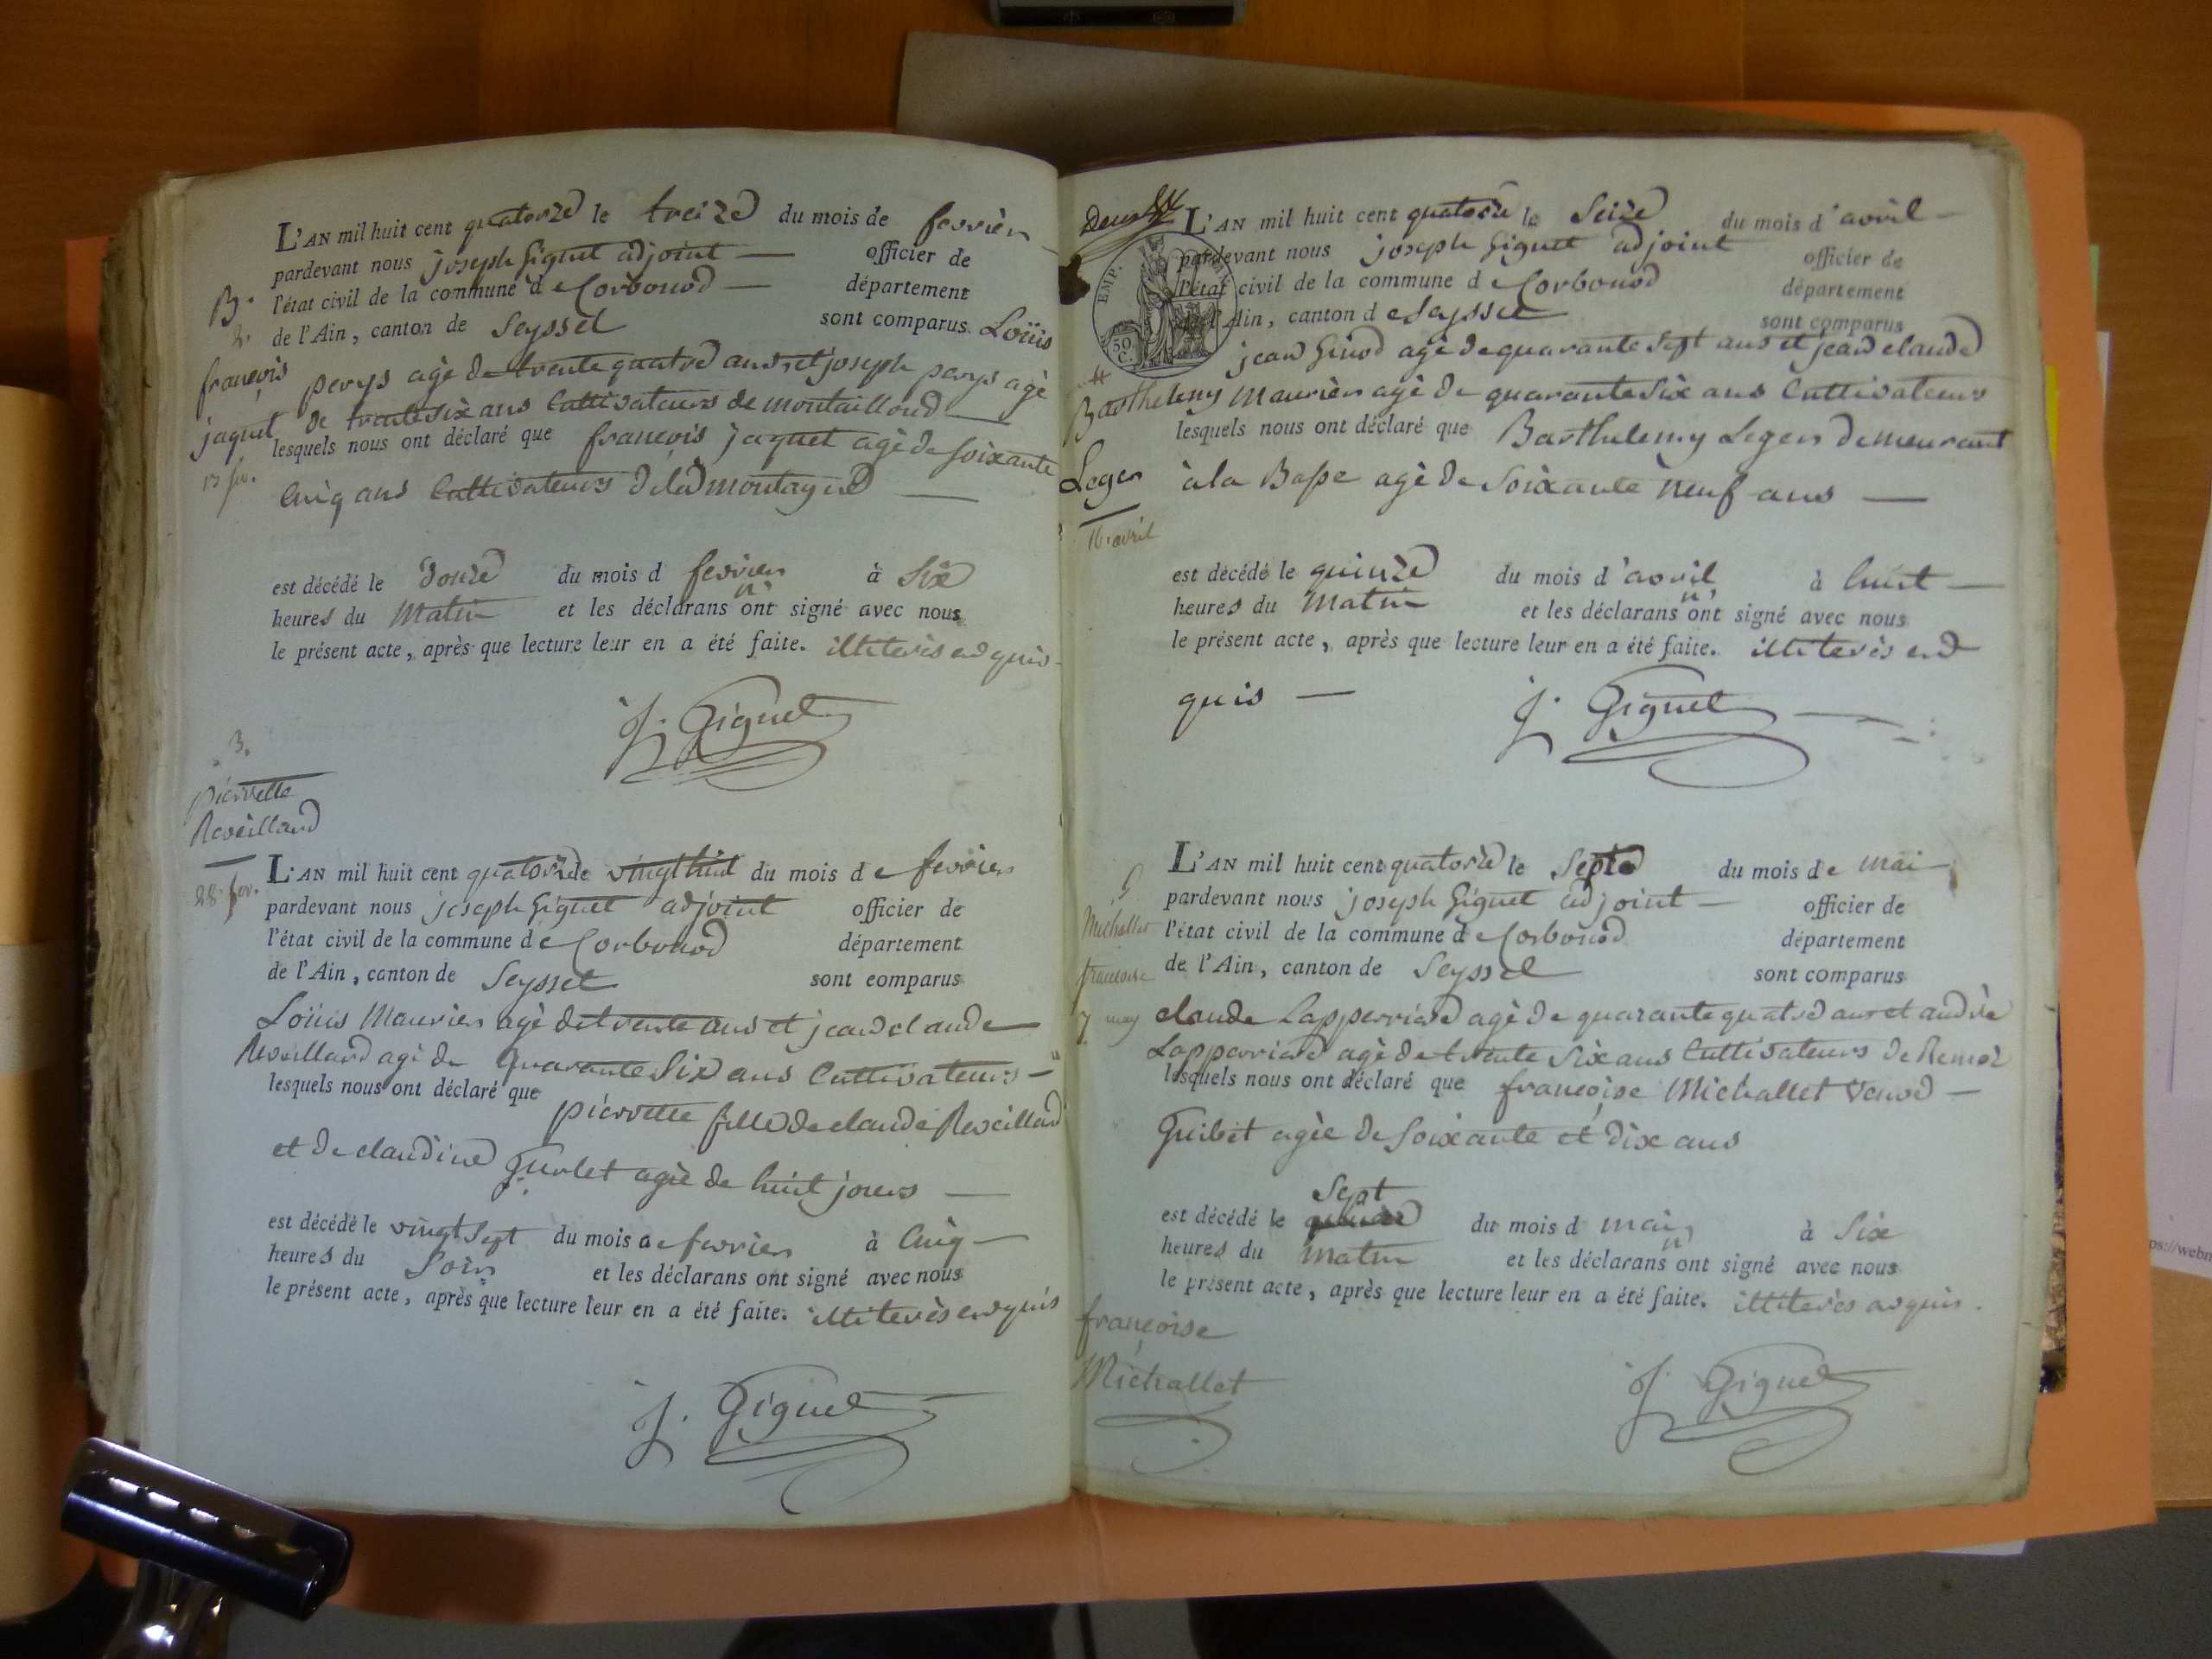 L'AN mil huit cent quatorze le treize du mois de fevrier
pardevant nous joseph Giguet adjoint officier de
l'état civil de la commune de Corbonod département
de l'Ain, canton de Seyssel sont comparus Loüis
perys agé de trente quatre ans et joseph perys agé
de trente six ans Cultivateurs de montailloud
lesquels nous ont déclaré que françois jaquet agé de soixante
Cinq ans Cultivateurs de la montagne
est décédé le douze du mois d fevrier à Six
heures du Matin et les déclarans n'ont signé avec nous
le présent acte, après que lecture leur en a été faite. illiterés enquis
J. Giguet
B.
2.
françois
jaquet
13 fev.
3.
pierrette
Reveilland
28. fev.
L'AN mil huit cent quatorze le vingt huit du mois de fevrier
pardevant nous joseph Giguet adjoint officier de
l'état civil de la commune de Corbonod département
de l'Ain, canton de Seyssel sont comparus
Loüis Maurier agé de trente ans et jean claude
Reveilland agé de quarante Six ans Cultivateurs
lesquels nous ont déclaré que pierrette fille de claude Reveilland
et de claudine Gurlet agée de huit jours
est décédé le vingt Sept du mois de fevrier à Cinq
heures du Soir et les déclarans ont signé avec nous
le présent acte, après que lecture leur en a été faite. illiterés enquis
J. Giguet
L'AN mil huit cent quatorze le Seize du mois d'avril
pardevant nous joseph Giguet adjoint officier de
l'état civil de la commune de Corbonod département
de l'Ain, canton de Seyssel sont comparus
EMP.
50
C.
jean Ginod agé de quarante Sept ans et jean claude
Maurier agé de quarante Six ans Cultivateurs
lesquels nous ont déclaré que Barthelemy Leger demeurant
à la Basse agé de Soixante Neuf ans
Barthelemy
Leger
16. avril
est décédé le quinze du mois d'avril à huit
heures du Matin et les déclarans n'ont signé avec nous
le présent acte, après que lecture leur en a été faite. illiterés en
quis
J. Giguet
L'AN mil huit cent quatorze le Sept du mois de mai
pardevant nous joseph Giguet adjoint officier de
l'état civil de la commune de Corbonod département
de l'Ain, canton de Seyssel sont comparus
claude Lapperriere agé de quarante quatre ans et andré
Lapperriere agé de trente Six ans Cultivateurs de Remoz
lesquels nous ont déclaré que françoise Michallet veuve
Guibet agée de Soixante et dix ans
5
Michallet
francoise
7 may
Sept
est décédé le du mois d mai à Six
heures du matin et les déclarans n'ont signé avec nous
le présent acte, après que lecture leur en a été faite. illiterés enquis.
françoise
Michallet
J. Giguet